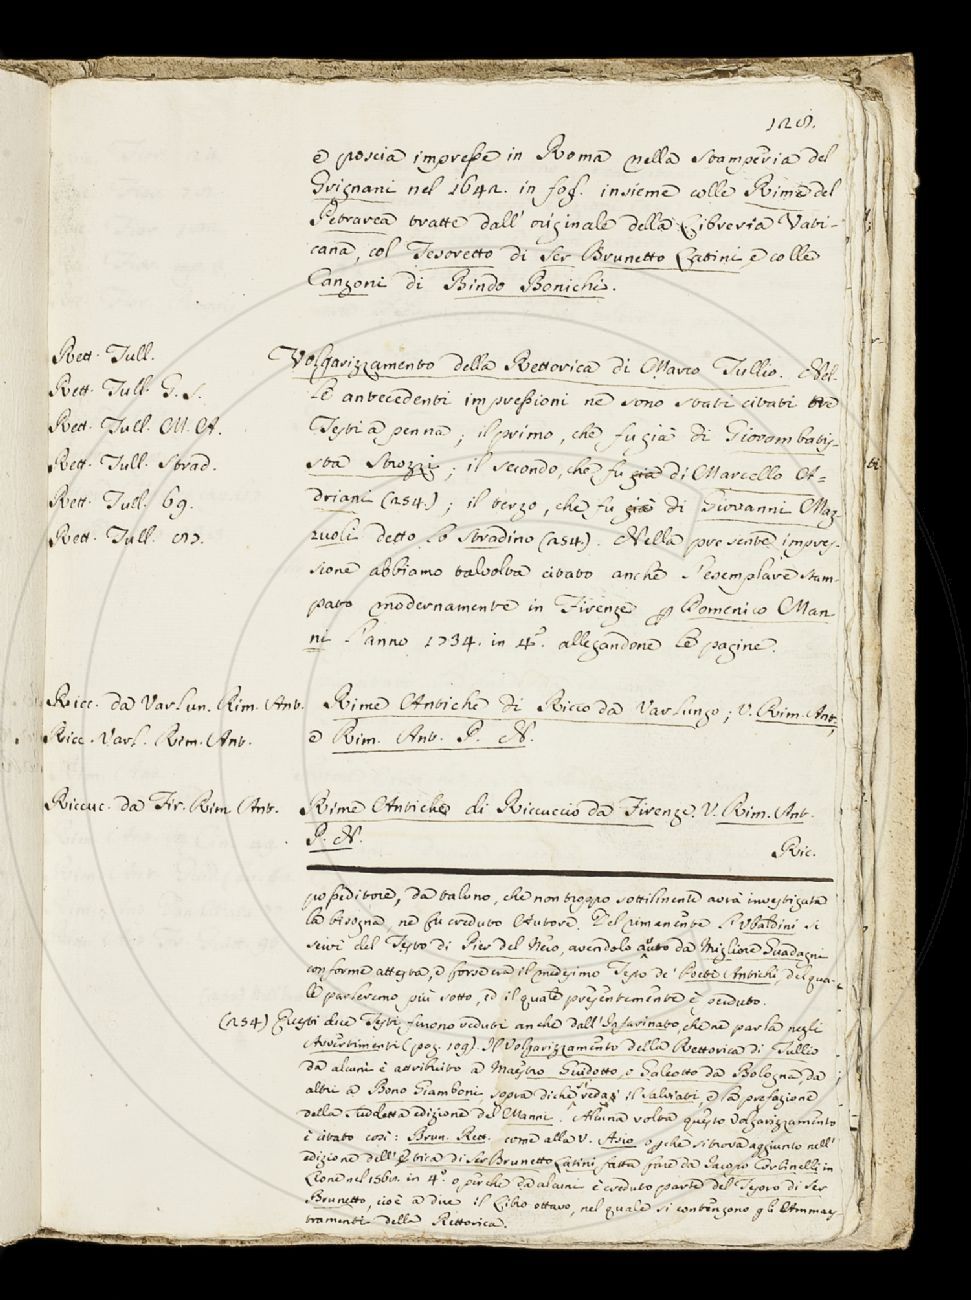 128.
e poscia impresse in Roma nella stamperia del
Grignani nel 1642. in fog. insieme colle Rime del
Petrarca tratte dall' originale della Libreria Vati-
cana, col Tesoretto di ser Brunetto Latini, e colle
Canzoni di Bindo Bonichi.
Rett. Tull.
Rett. Tull. G. S.
Rett. Tull. M. A.
Rett. Tull. Strad.
Rett. Tull. 69.
Rett. Tull.
Volgarizzamento della Rettorica di Marco Tullio. Nel-
le antecedenti impressioni ne sono stati citati tre
Testi a penna; il primo, che fu già di Giovambatis-
sta Strozzi; il secondo, che fu già di Marcello A-
driani (254); il terzo, che fu già di Giovanni Maz-
zuoli detto lo Stradino (254). Nella presente impres-
sione abbiamo talvolta citato anche l'esemplare stam-
pato modernamente in Firenze p Domenico Man-
ni l'anno 1734. in 4.º allegandone le pagine.
Ricc. da Varlun. Rim. Ant.
Ricc. Varl. Rim. Ant.
Rime Antiche di Ricco da Varlungo; V. Rim. Ant.,
e Rim. Ant. P. N.
Riccuc. da Fir. Rim. Ant.
Rime Antiche di Riccuccio da Firenze. V. Rim. Ant.
P. N.
Ric.
posseditore, da taluno, che non troppo sottilmente avrà investigata
la bisogna ne fu creduto Autore. Del rimanente l'Ubaldini si
servì del Testo di Pier del Nero, avendolo auto da Migliore Guadagni
conforme attesta, e forse era il medesimo Testo de' Poeti Antichi, del qua-
le parleremo più sotto, ed il quale presentemente è perduto.
(254) Questi due Testi furono veduti anche dall'Infarinato, che ne parla negli
Avvertimenti (pag. 109). Il Volgarizzamento della Rettorica di Tullio
da alcuni è attribuito a Maestro Guidotto, o Galeotto da Bologna, da
altri a Bono Giamboni, sopra di che vedasi il Salviati, e la prefazione
della suddetta edizione del Manni. Alcuna volta questo Volgarizzamento
è citato così: Brun. Rett. come alla V. Asio o p che si trova aggiunto nell'
edizione dell'Etica di Ser Brunetto Latini fatta fare da Jacopo Corbinelli in
Lione nel 1568. in 4.º o perchè da alcuni è creduto parte del Tesoro di Ser
Brunetto, cioè a dire il Libro ottavo, nel quale si contengono gli Ammaes-
tramenti della Rettorica.